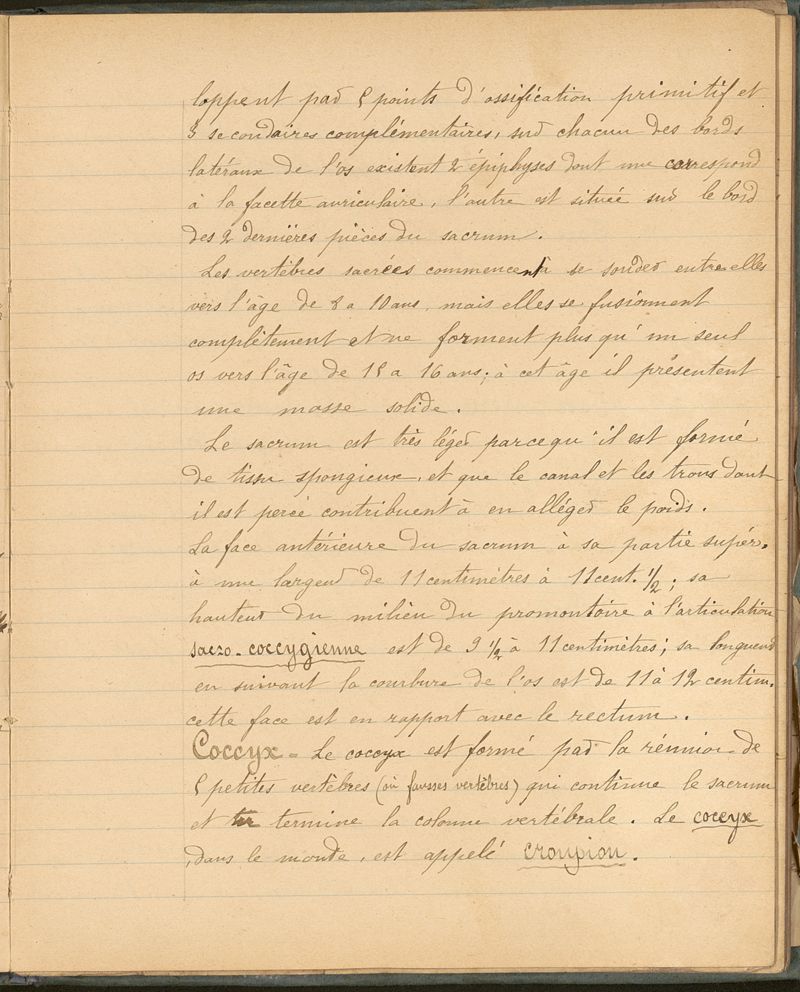 loppent par 5 points d'ossification primitif et
3 secondaires complémentaires, sur chacun des bords
latéraux de l'os existent 2 épiphyses dont une correspond
à la facette auriculaire, l'autre est située sur le bord
des 2 dernières pièces du sacrum.
Les vertèbres sacrées commencent à se souder entre elles
vers l'âge de 8 a 10 ans, mais elles se fusionnent
complètement et ne forment plus qu'un seul
os vers l'âge de 15 a 16 ans; à cet âge il présentent
une masse solide.
Le sacrum est très léger parcequ'il est formé
de tissu spongieux, et que le canal et les trous dont
il est percé contribuent à en alléger le poids.
La face antérieure du sacrum à sa partie supér.
à une largeur de 11 centimètres à 11 cent. 1/2; sa
hauteur du milieu du promontoire à l'articulation
sacro-coccygienne est de 9 1/2 à 11 centimètres; sa longueur
en suivant la courbure de l'os est de 11 à 12 centim.
cette face est en rapport avec le rectum.
Coccyx - Le coccyx est formé par la réunion de
5 petites vertèbres (ou fausses vertèbres) qui continue le sacrum
et termine la colonne vertébrale. Le coccyx
, dans le monde, est appelé croupion.